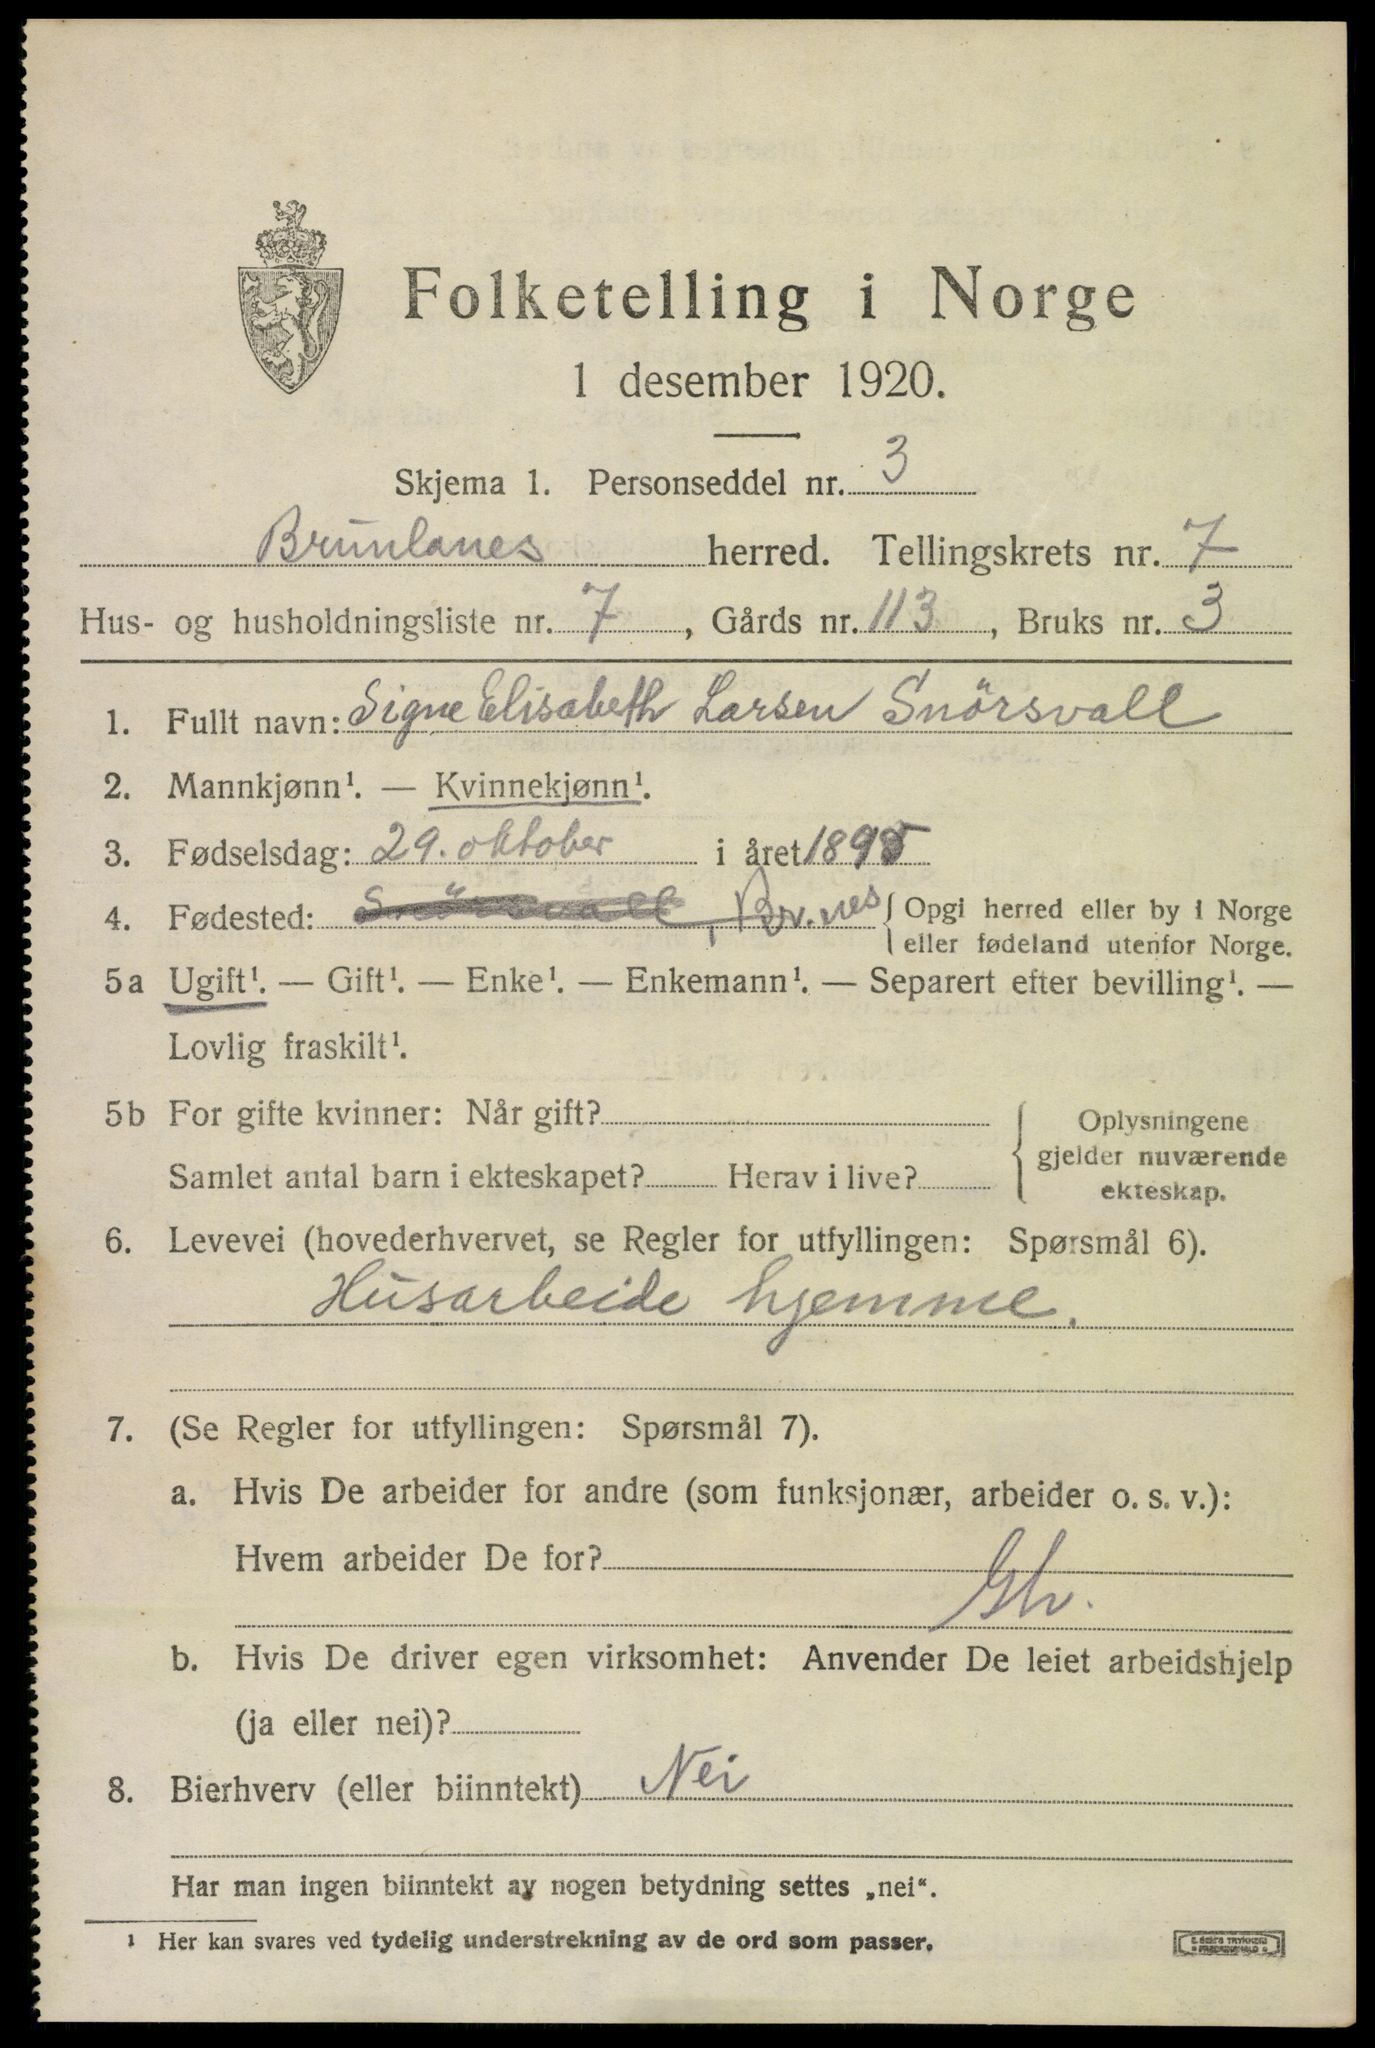 Folketelling i Norge
1 desember 1920.
Skjema 1. Personseddel nr. 3
Brunlanes herred. Tellingskrets nr. 7
Hus- og husholdningsliste nr. 7, Gårds nr. 113, Bruks nr. 3
1. Fullt navn: Signe Elisabeth Larsen Snörsvall
2. Mannkjønn¹. — Kvinnekjønn¹.
3. Fødselsdag: 29. oktober i året 1895
4. Fødested: Snörsvall, Br.nes { Opgi herred eller by i Norge
eller fødeland utenfor Norge.
5a Ugift¹. — Gift¹. — Enke¹. — Enkemann¹. — Separert efter bevilling¹. —
Lovlig fraskilt¹.
5b For gifte kvinner: Når gift? { Oplysningene
gjelder nuværende
Samlet antal barn i ekteskapet? Herav i live?
ekteskap.
6. Levevei (hovederhvervet, se Regler for utfyllingen: Spørsmål 6).
Husarbeide hjemme.
7. (Se Regler for utfyllingen: Spørsmål 7).
a. Hvis De arbeider for andre (som funksjonær, arbeider o. s. v.):
Hvem arbeider De for?
b. Hvis De driver egen virksomhet: Anvender De leiet arbeidshjelp
(ja eller nei)?
8. Bierhverv (eller biinntekt) Nei
Har man ingen biinntekt av nogen betydning settes „nei“.
¹ Her kan svares ved tydelig understrekning av de ord som passer.